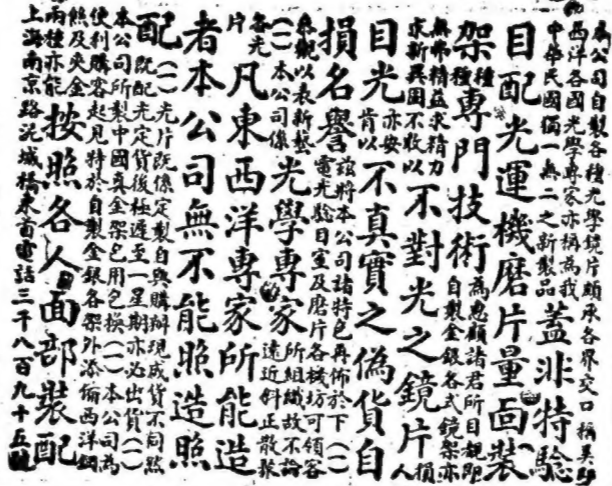 本公司自製各種光學鏡片頗承各界交口稱美即
西洋各國光學專家亦稱為我
中華民國獨一無二之新製品
蓋非特驗
目配光運機磨片量面裝
架
種種
專門技術
為惠顧諸君所目覩即
自製金銀各式鏡架亦
無弗精益求精力
求新異固不敢以
不對光之鏡片
損人
目光
亦安
肯以
不真實之偽貨自
損名譽
茲將本公司諸特色再佈於下(一)
電光驗目室及磨片各機坊可領客
參觀以表新藝
(一)本公司係
光學專家
所組織故不論
遠近斜正散聚
各光
片
凡東西洋專家所能造
者本公司無不能照造照
配
(一)光片既係定製自與購辦現成貨不同然
既配光定貨後極遲至一星期亦必出貨(一)
本公司所製中國真金架包用包換(一)本公司為
便利購客起見特於自製金銀各架外添備西洋鋼
及夾金
兩種亦能
按照各人面部裝配
上海南京路泥城橋東首電話三千八百九十五號